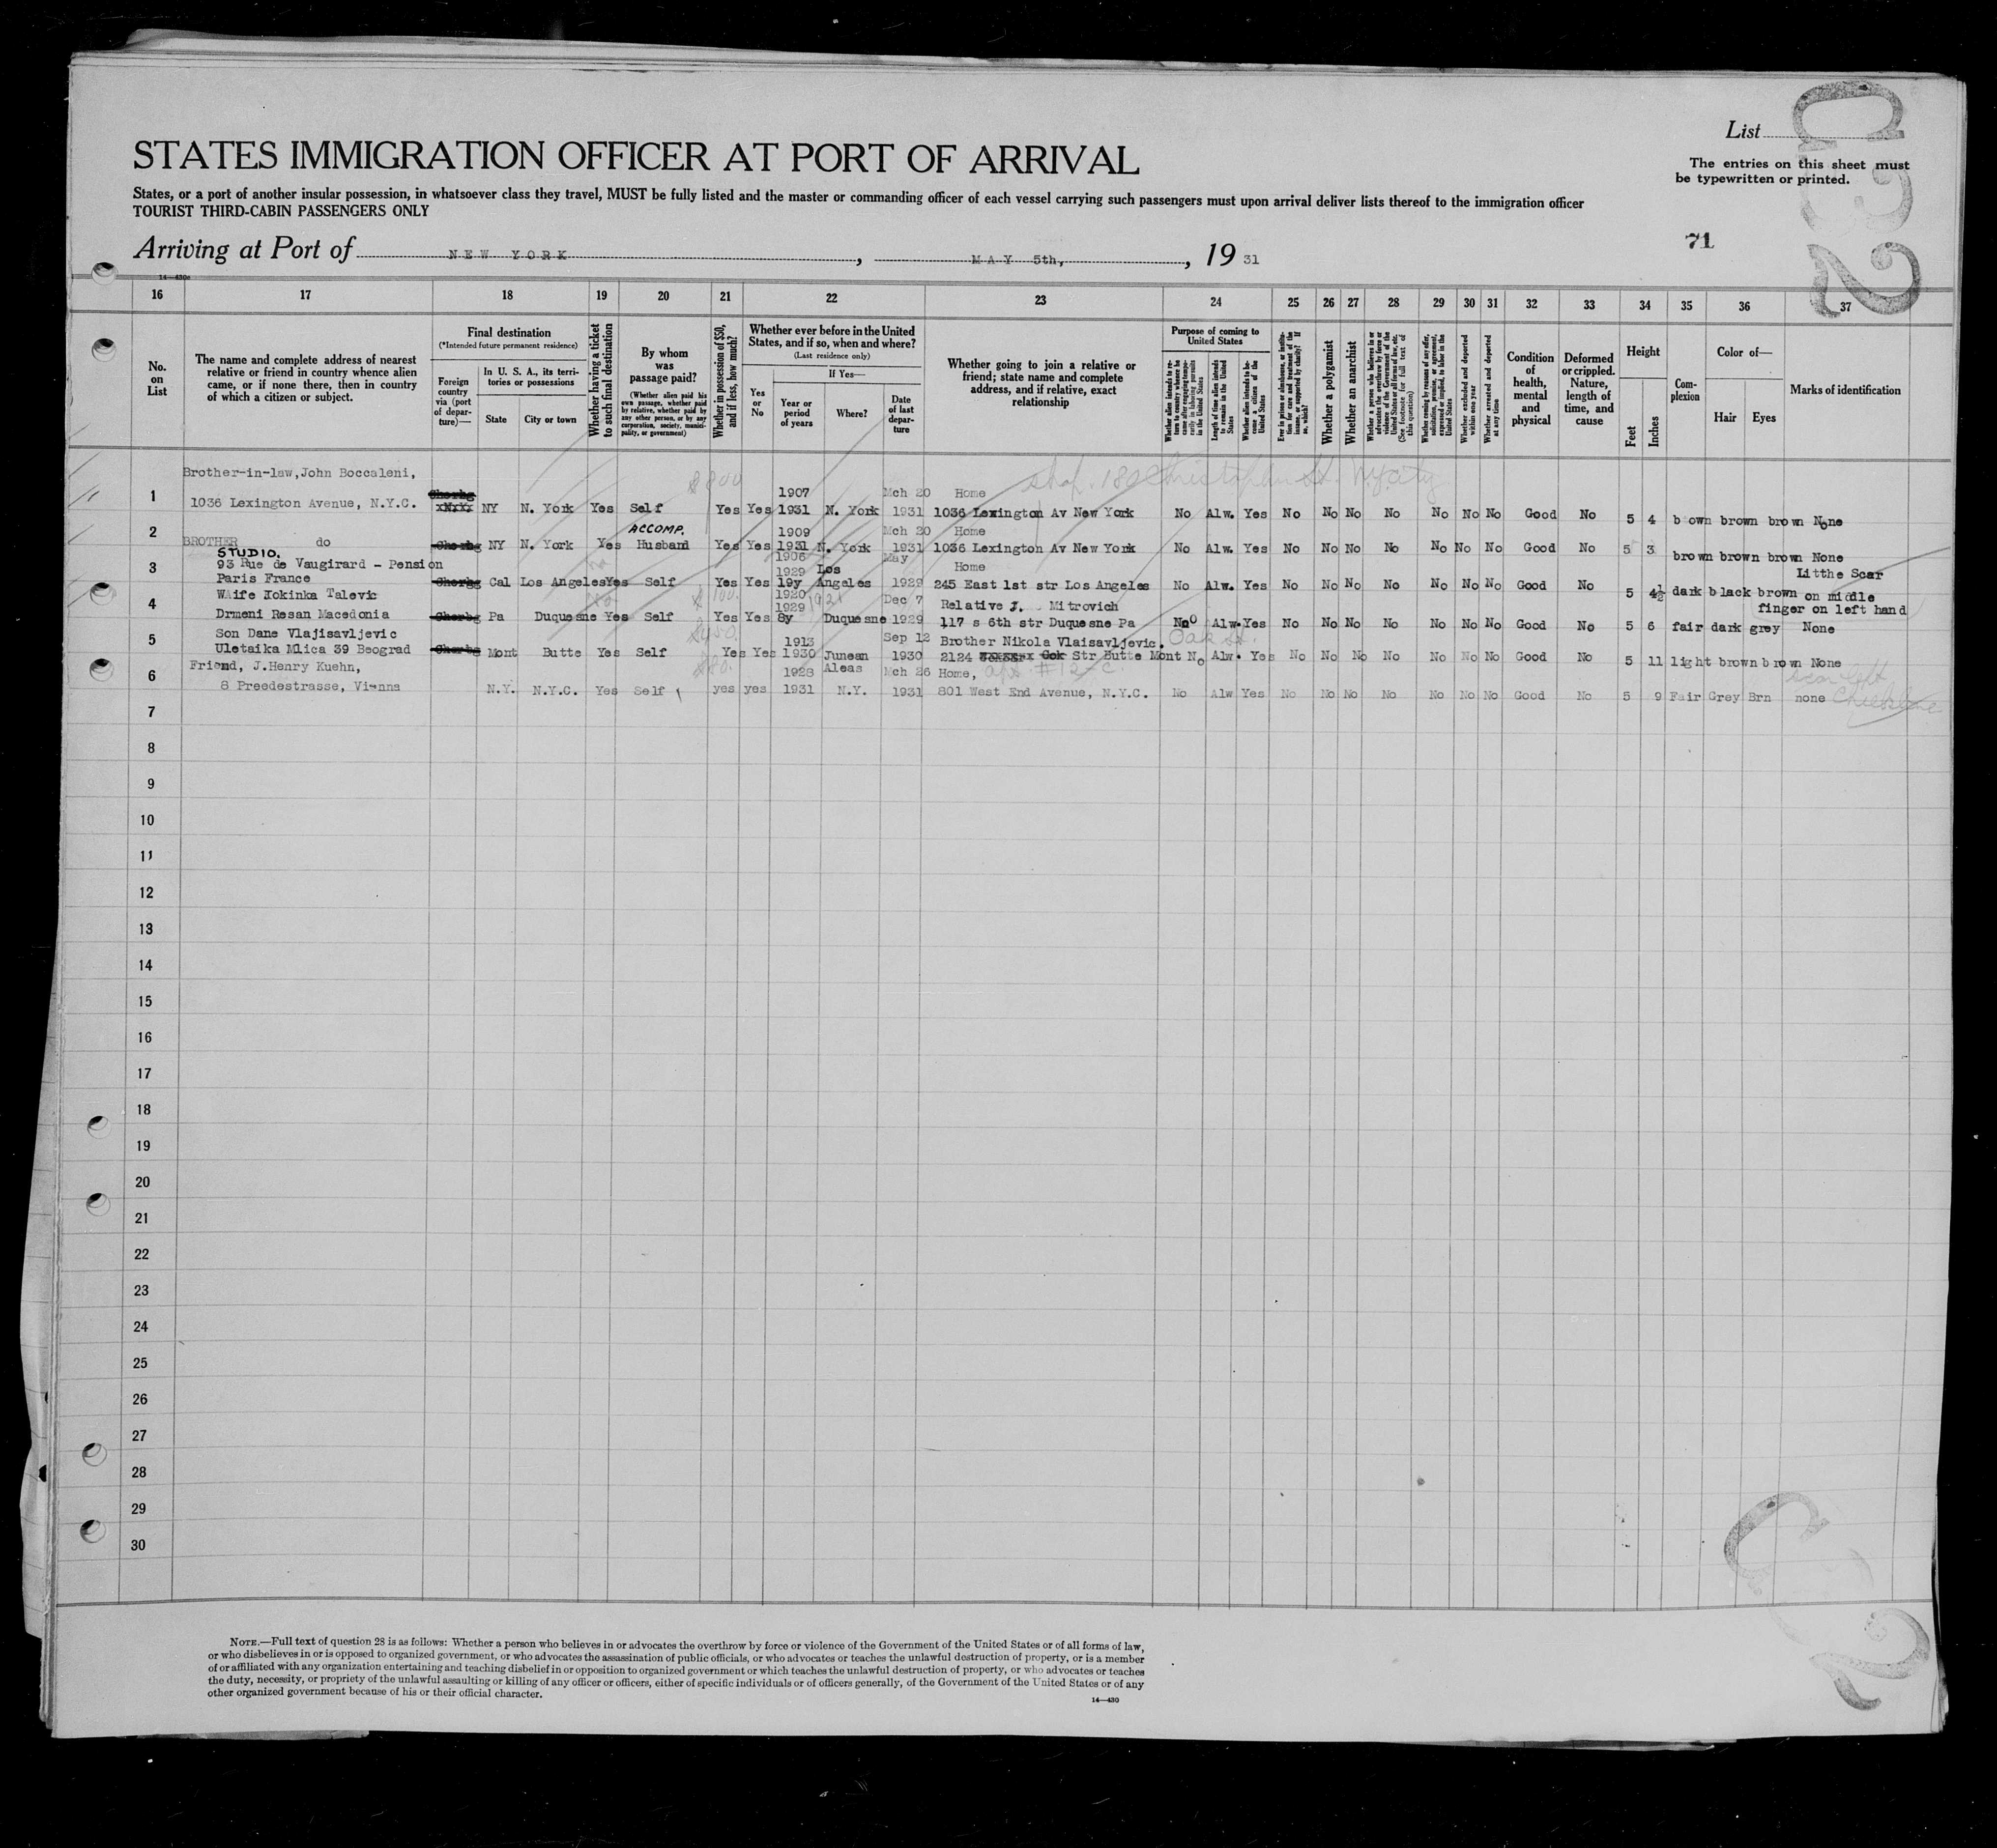 List
The entries on this sheet must
be typewritten or printed.
STATES IMMIGRATION OFFICER AT PORT OF ARRIVAL
States, or a port of another insular possession, in whatsoever class they travel, MUST be fully listed and the master or commanding officer of each vessel carrying such passengers must upon arrival deliver lists thereof to the immigration officer
TOURIST THIRD-CABIN PASSENGERS ONLY
71
Arriving at Port of NEW YORK, MAY 5th, 1931
14—430c
16 17 18 19 20 21 22 23 24 25 26 27 28 29 30 31 32 33 34 35 36 37
No. on List
The name and complete address of nearest relative or friend in country whence alien came, or if none there, then in country of which a citizen or subject.
Final destination
(*Intended future permanent residence)
Foreign country via (port of departure)—
In U. S. A., its territories or possessions
State
City or town
Whether having a ticket to such final destination
By whom was passage paid?
(Whether alien paid his own passage, whether paid by relative, whether paid by any other person, or by any corporation, society, municipality, or government)
Whether in possession of $50, and if less, how much?
Whether ever before in the United States, and if so, when and where?
(Last residence only)
Yes or No
If Yes—
Year or period of years
Where?
Date of last departure
Whether going to join a relative or friend; state name and complete address, and if relative, exact relationship
Purpose of coming to United States
Whether alien intends to return to country whence he came after engaging temporarily in laboring pursuits in the United States
Length of time alien intends to remain in the United States
Whether alien intends to become a citizen of the United States
Ever in prison or almshouse, or institution for care and treatment of the insane, or supported by charity? If so, which?
Whether a polygamist
Whether an anarchist
Whether a person who believes in or advocates the overthrow by force or violence of the Government of the United States or all forms of law, etc. (See footnote for full text of this question)
Whether coming by reason of any offer, solicitation, promise, or agreement, expressed or implied, to labor in the United States
Whether excluded and deported within one year
Whether arrested and deported at any time
Condition of health, mental and physical
Deformed or crippled. Nature, length of time, and cause
Height
Feet
Inches
Complexion
Color of—
Hair Eyes
Marks of identification
Brother-in-law, John Boccaleni,
$800 shop. 180 Christopher St. N.Y. City
1907 Mch 20 Home
1 1036 Lexington Avenue, N.Y.C. Cherbg NY N. York Yes Self Yes Yes 1931 N. York 1931 1036 Lexington Av New York No Alw. Yes No No No No No No No Good No 5 4 b own brown brown None
ACCOMP. 1909 Mch 20 Home
2 BROTHER do Cherbg NY N. York Yes Husband Yes Yes 1931 N. York 1931 1036 Lexington Av New York No Alw. Yes No No No No No No No Good No 5 3 brown brown brown None
STUDIO.
1906 May
3 93 Rue de Vaugirard - Pension no 1929 Los Home
Paris France Cherbg Cal Los Angeles Yes Self Yes Yes 19y Angeles 1929 245 East 1st str Los Angeles No Alw. Yes No No No No No No No Good No 5 4½ dark black brown Litthe Scar on middle finger on left hand
WAife Jokinka Talevic No $100. 1920 1921 Dec 7
4 1929 Relative J. Mitrovich
Drmeni Resan Macedonia Cherbg Pa Duquesne Yes Self Yes Yes 8y Duquesne 1929 117 s 6th str Duquesne Pa No Alw. Yes No No No No No No No Good No 5 6 fair dark grey None
5 Son Dane Vlajisavljevic $450. 1913 Sep 12 Brother Nikola Vlaisavljevic. Oak St.
Uletaika Mlica 39 Beograd Cherbg Mont Butte Yes Self Yes Yes 1930 Junean Aleas 1930 2124 Gok Str Butte Mont No Alw. Yes No No No No No No No Good No 5 11 light brown brown None
6 Friend, J.Henry Kuehn, $80. 1928 Mch 26 Home, apt. #12-C. scar left
8 Preedestrasse, Vienna N.Y. N.Y.C. Yes Self yes yes 1931 N.Y. 1931 801 West End Avenue, N.Y.C. No Alw Yes No No No No No No No Good No 5 9 Fair Grey Brn none
7
8
9
10
11
12
13
14
15
16
17
18
19
20
21
22
23
24
25
26
27
28
29
30
NOTE.—Full text of question 28 is as follows: Whether a person who believes in or advocates the overthrow by force or violence of the Government of the United States or of all forms of law,
or who disbelieves in or is opposed to organized government, or who advocates the assassination of public officials, or who advocates or teaches the unlawful destruction of property, or is a member
of or affiliated with any organization entertaining and teaching disbelief in or opposition to organized government or which teaches the unlawful destruction of property, or who advocates or teaches
the duty, necessity, or propriety of the unlawful assaulting or killing of any officer or officers, either of specific individuals or of officers generally, of the Government of the United States or of any
other organized government because of his or their official character.
14—430